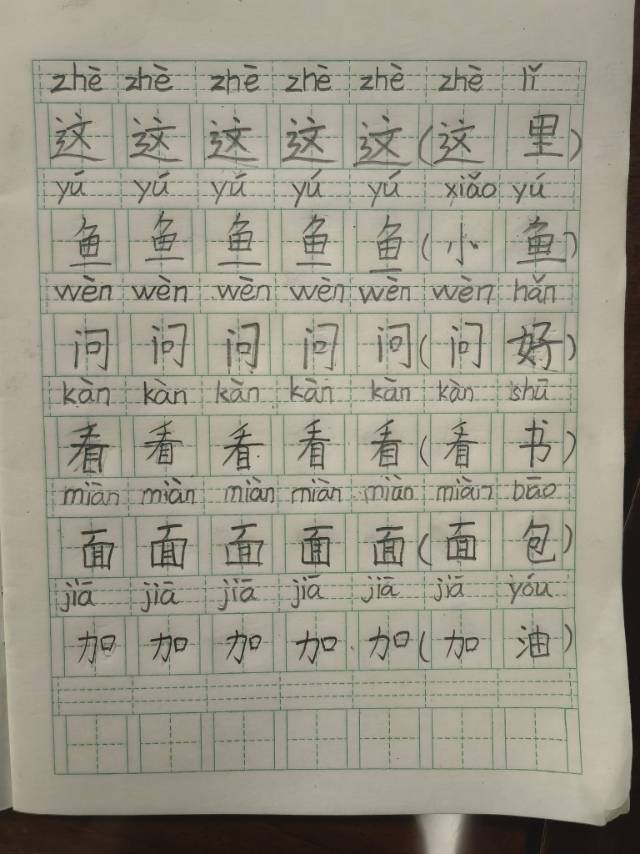 zhè zhè zhè zhè zhè zhè lǐ
这 这 这 这 这 (这 里)
yú yú yú yú yú xiǎo yú
鱼 鱼 鱼 鱼 鱼 (小 鱼)
wèn wèn wèn wèn wèn wèn hǎn
问 问 问 问 问 (问 好)
kàn kàn kàn kàn kàn kàn shū
看 看 看 看 看 (看 书)
miàn miàn miàn miàn miàn miàn bāo
面 面 面 面 面 (面 包)
jiā jiā jiā jiā jiā jiā yóu
加 加 加 加 加 (加 油)